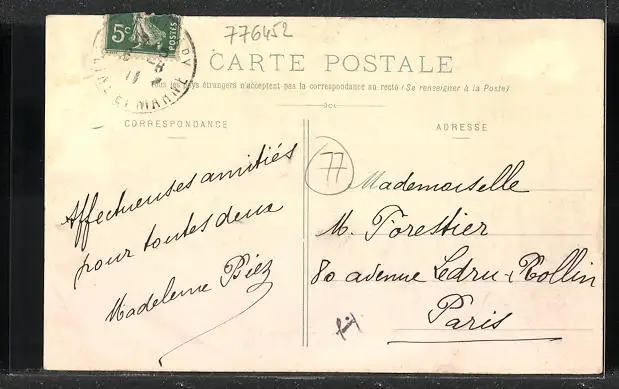 776452
5c
POSTES
SEINE ET MARNE
CARTE POSTALE
Tous les pays étrangers n'acceptent pas la correspondance au recto (Se renseigner à la Poste)
CORRESPONDANCE
ADRESSE
77
Affectueuses amitiés
pour toutes deux
Madeleine Piez
Mademoiselle
M. Forestier
80 avenue Ledru-Rollin
Paris